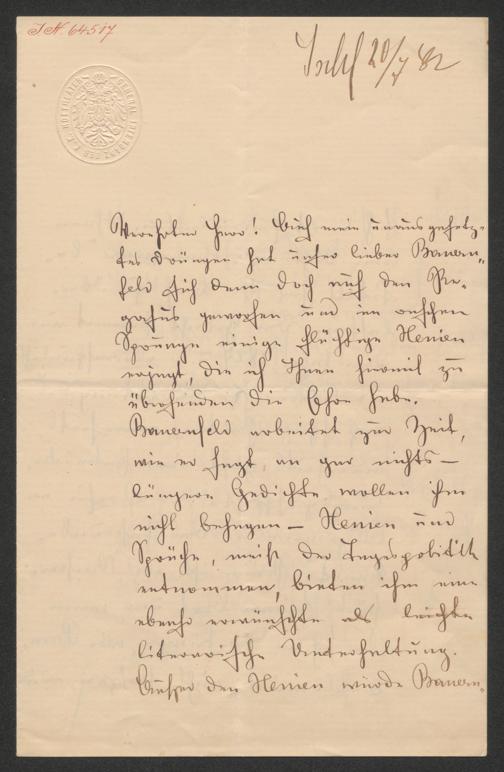 J.N. 64517
Ischl 20/7 82
GENERAL INTENDANZ DER K.K. HOFTHEATER
Verehrter Herr! Auf mein unausgesetz-
tes Drängen hat unser lieber Bauern-
feld sich denn doch auf den Pe-
gasus geworfen und im raschen
Sprunge einige flüchtige Xenien
erjagt, die ich Ihnen hiermit zu
übersenden die Ehre habe.
Bauernfeld arbeitet zur Zeit,
wie er sagt, an gar nichts –
längere Gedichte wollen ihm
nicht behagen – Xenien und
Sprüche, meist der Tagespolitik
entnommen, bieten ihm eine
ebenso erwünschte als leichte
literarische Unterhaltung.
Außer den Xenien würde Bauern-